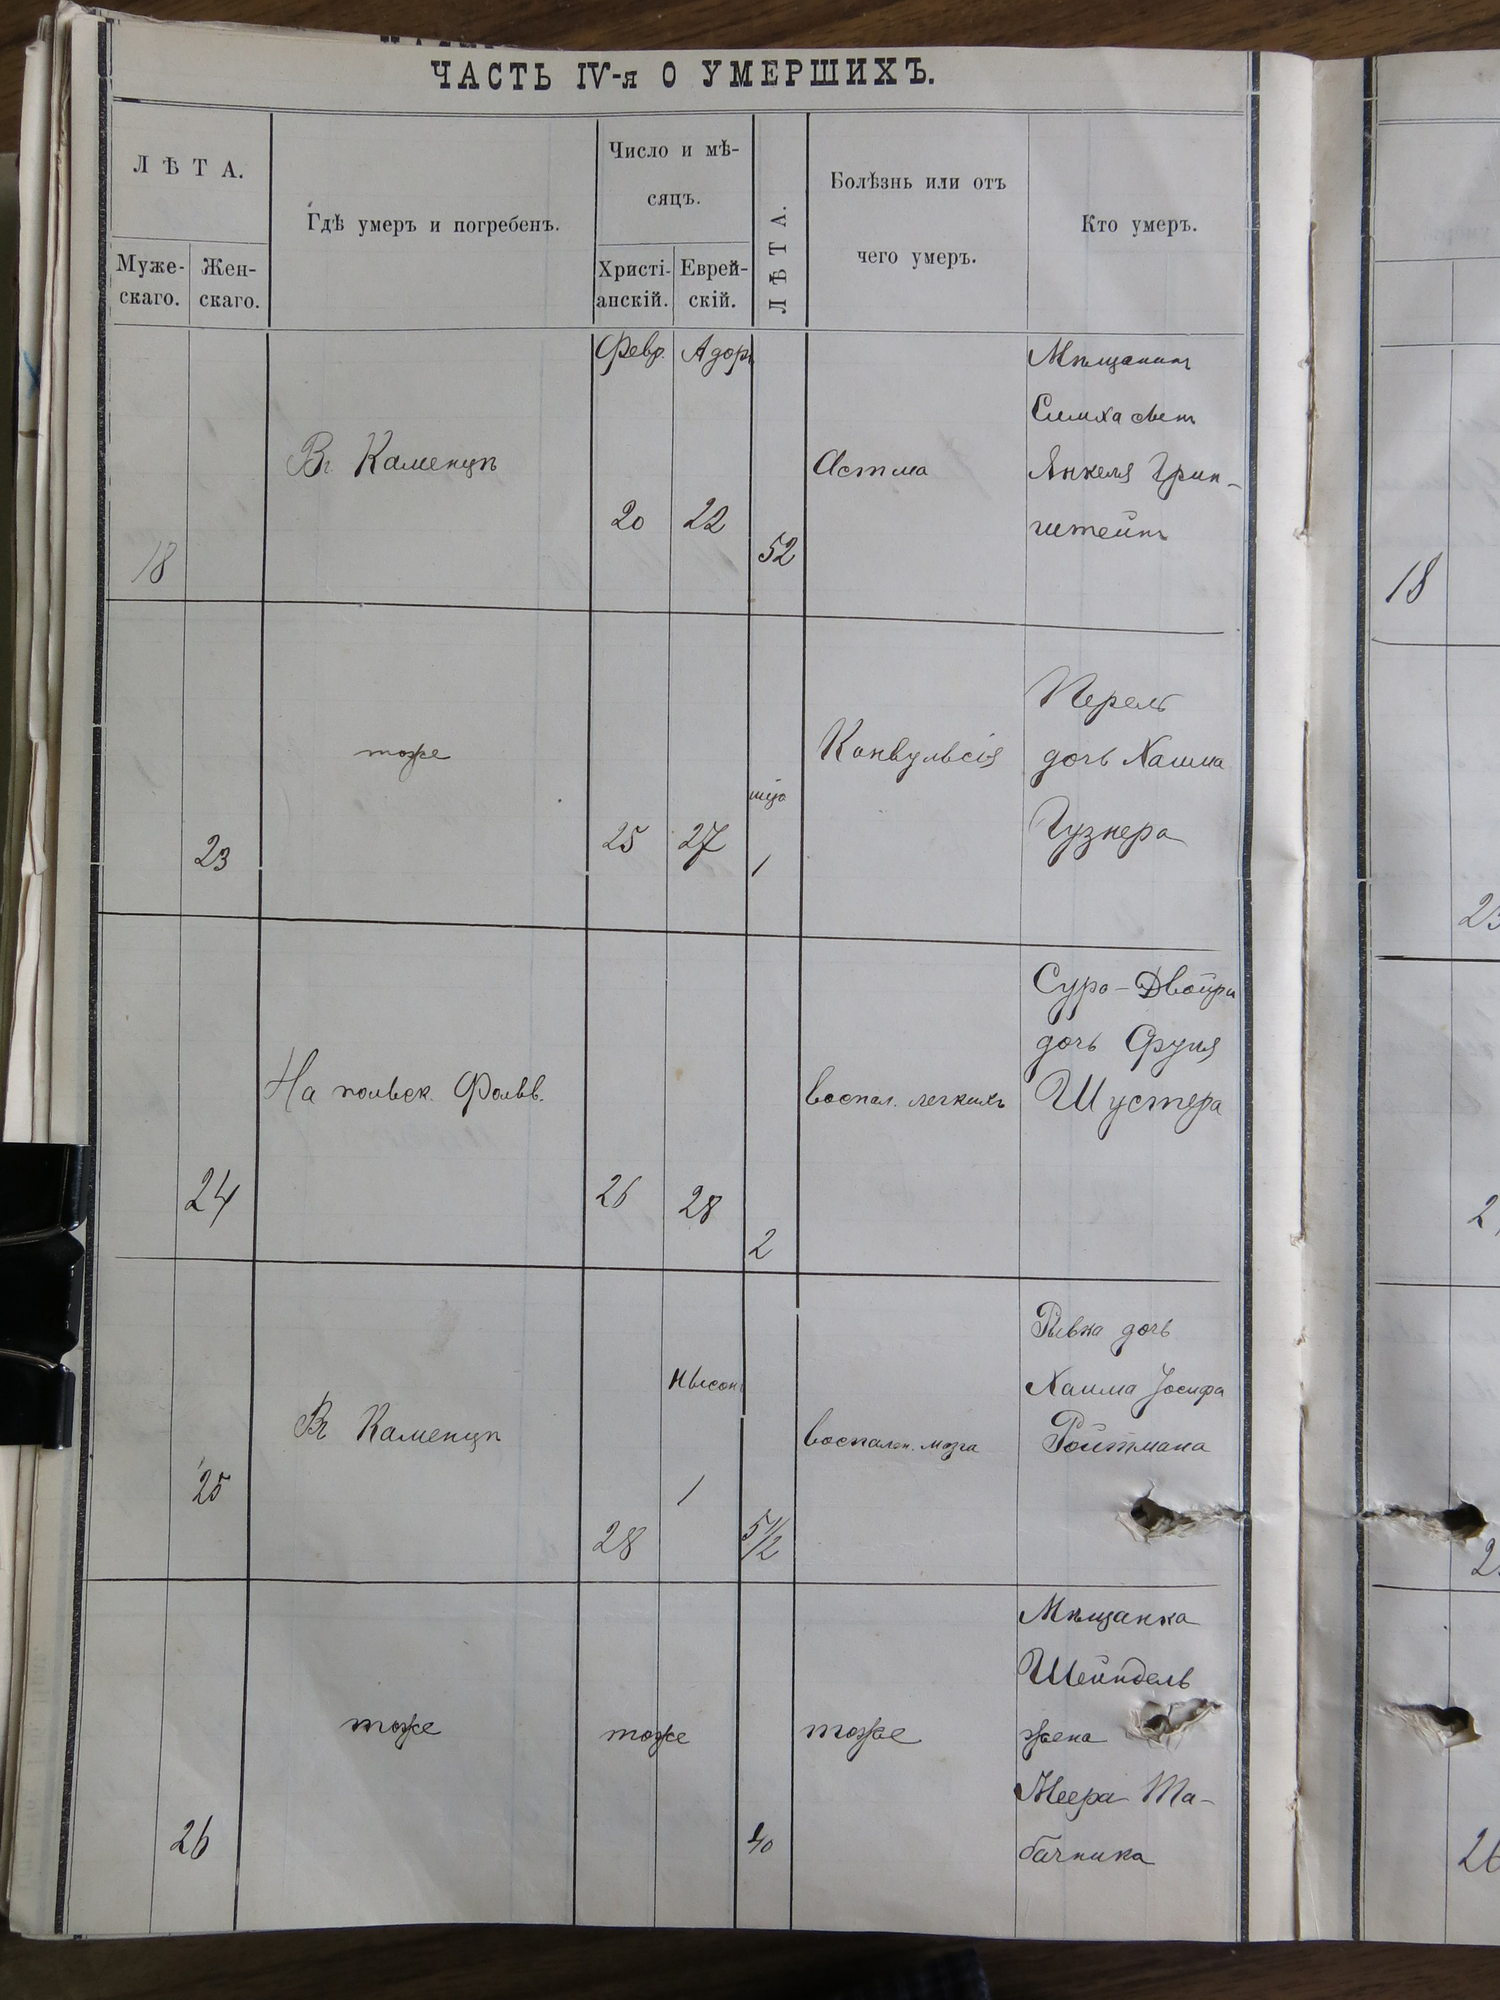 ЧАСТЬ IV-я О УМЕРШИХЪ.
ЛѢТА.
Муже-
скаго.
Жен-
скаго.
Гдѣ умеръ и погребенъ.
Число и мѣ-
сяцъ.
Христі-
анскій.
Еврей-
скій.
ЛѢТА.
Болѣзнь или отъ
чего умеръ.
Кто умеръ.
18
Въ Каменцѣ
Февр.
20
Адоръ
22
52
Астма
Мѣщанинъ
Симха
Янкеля Грин-
штейнъ
23
тоже
25
27
1
Конвульсія
Перель
дочь Хаима
Гузнера
24
На польск. Фольв.
26
28
2
воспал. легкихъ
Суро-Двойра
дочь Фуля
Шустера
25
Въ Каменцѣ
28
Нысонъ
1
5 1/2
воспален. мозга
Ривка дочь
Хаима Іосифа
Ройтмана
26
тоже
тоже
40
тоже
Мѣщанка
Шейндель
жена
Меера Та-
бачника
18
23
2
2
26